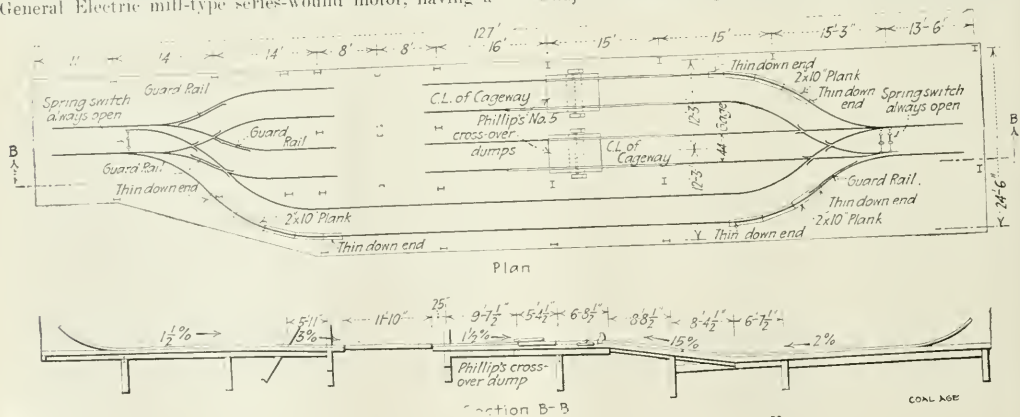 General Electric mill-type series-wound motor, having a
127'
11' 14' 14' 8' 8' 16' 15' 15' 15'-3" 13'-6"
Spring switch
always open
Guard Rail
Guard
Rail
Guard Rail
Thin down end
2"x10" Plank
Thin down end
C.L. of Cageway
Phillip's No.5
cross-over
dumps
C.L. of
Cageway
12'-3"
44" Gage
12'-3"
Thin down end
2"x10" Plank
Thin down
end
Spring switch
always open
Guard Rail.
Thin down end
2"x10" Plank
Thin down end
24'-6"
B
B
Plan
5'-11" 11'-10" 25" 9'-7½" 5'-4½" 6'-8½" 8'-8½" 8'-4½" 6'-7½"
1½% 3% 1½% 15% 2%
Phillip's cross-
over dump
Section B-B
COAL AGE